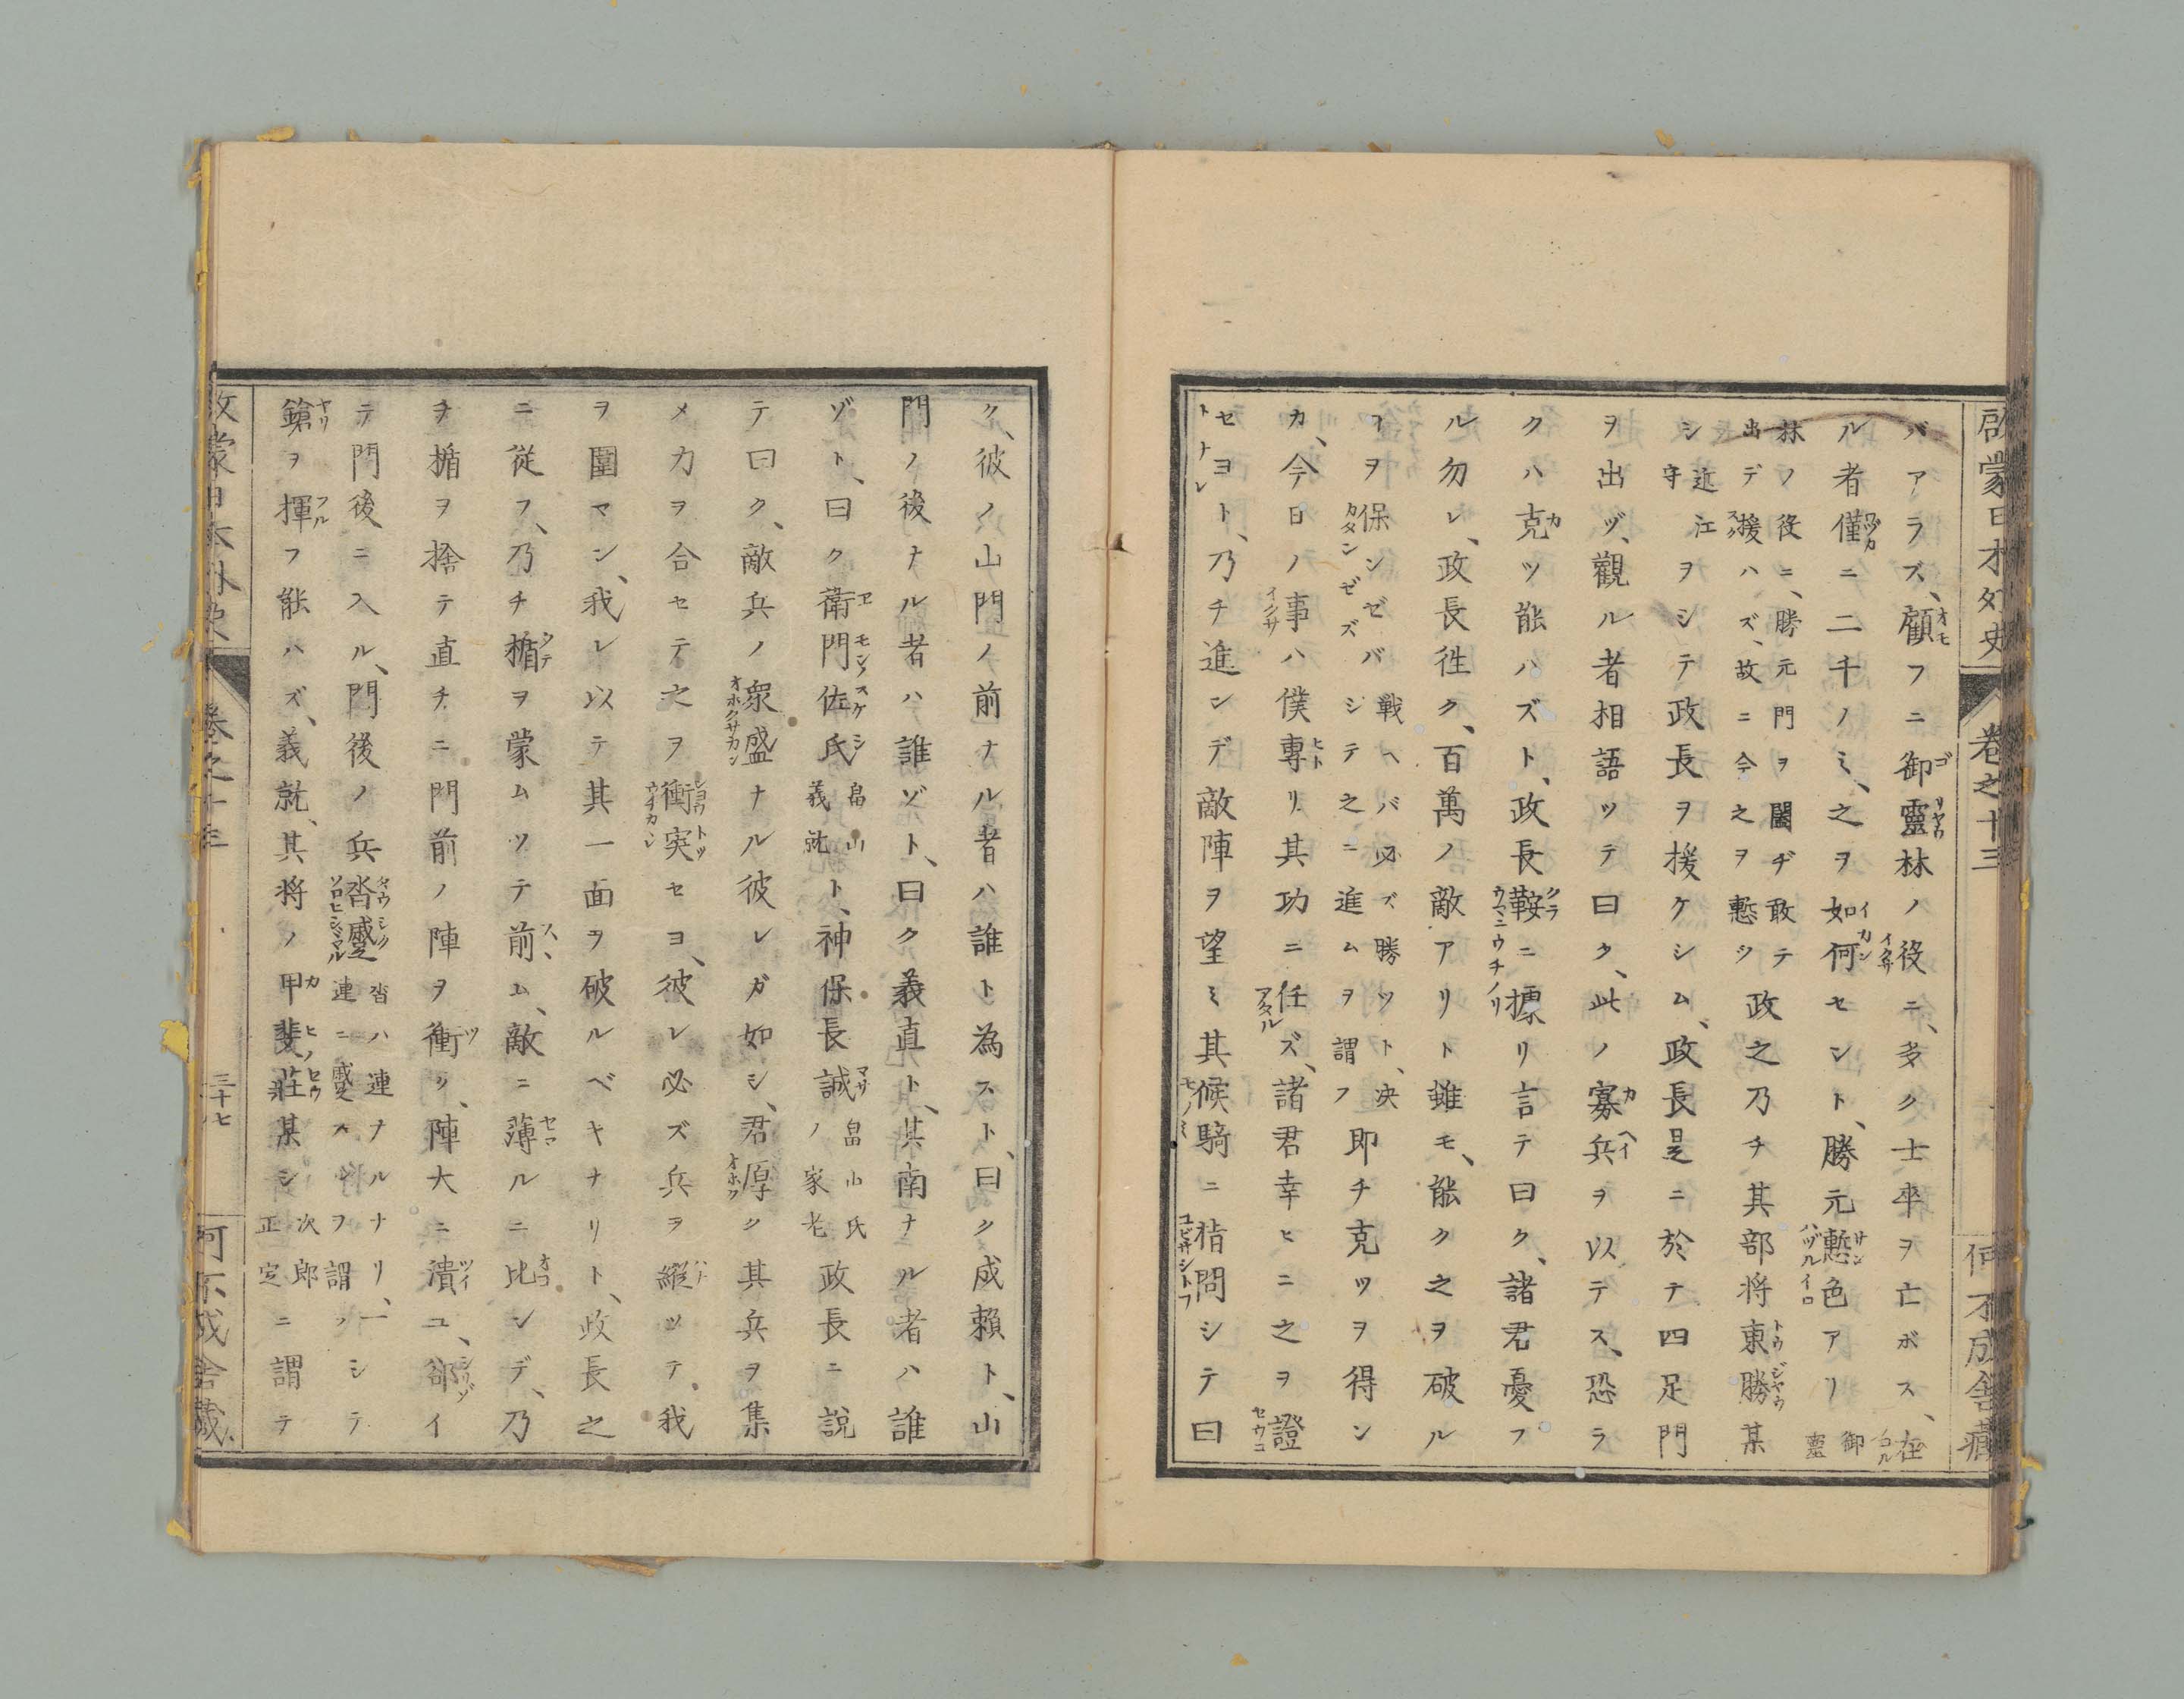 啓蒙日本外史 卷之十三 何不成舎蔵
バアラズ、顧フニ御靈林ノ役ニ、多ク士卒ヲ亡ボス、在
ル者僅ニ二千ノミ、之ヲ如何セント、勝元慙色アリ御靈
林ノ役ニ、勝元門ヲ闔ヂ敢テ
出デ援ハズ、故ニ今之ヲ慙ツ政之乃チ其部将東勝某
シ近江守ヲシテ政長ヲ援ケシム、政長是ニ於テ四足門
ヲ出ヅ、觀ル者相語ツテ曰ク、此ノ寡兵ヲ以テス、恐ラ
クハ克ツ能ハズト、政長鞍ニ摽リ言テ曰ク、諸君憂フ
ル勿レ、政長徃ク、百萬ノ敵アリト雖モ、能ク之ヲ破ル
コヲ保ンゼバ戦ヘバ必ズ勝ツト、決
シテ之ニ進ムヲ謂フ即チ克ツヲ得ン
カ、今日ノ事ハ僕専リ其功ニ任ズ、諸君幸ヒニ之ヲ證
セヨト、乃チ進ンデ敵陣ヲ望ミ其候騎ニ指問シテ曰
ク、彼ノ山門ノ前ナル者ハ誰ト為スト、曰ク成頼ト、山
門ノ後ナル者ハ誰ゾト、曰ク義直ト、其南ナル者ハ誰
ゾト、曰ク衛門佐氏畠山義就ト、神保長誠畠山氏ノ家老政長ニ説
テ曰ク、敵兵ノ衆盛ナル彼レガ如シ、君厚ク其兵ヲ集
メ力ヲ合セテ之ヲ衝突セヨ、彼レ必ズ兵ヲ縦ツテ我
ヲ圍マン、我レ以テ其一面ヲ破ルベキナリト、政長之
ニ従フ、乃チ楯ヲ蒙ムツテ前ム、敵ニ薄ルニ比ンデ、乃
チ楯ヲ捨テ直チニ門前ノ陣ヲ衝ク、陣大ニ潰ユ、郤イ
テ門後ニ入ル、門後ノ兵沓蹙沓ハ連ナルナリ、一
連ニ蹙ルヲ謂フシテ
鎗ヲ揮フ能ハズ、義就、其将ノ甲斐莊某シ次郎正定ニ謂テ
啓蒙日本外史 卷之十三 三十七 何不成舎蔵